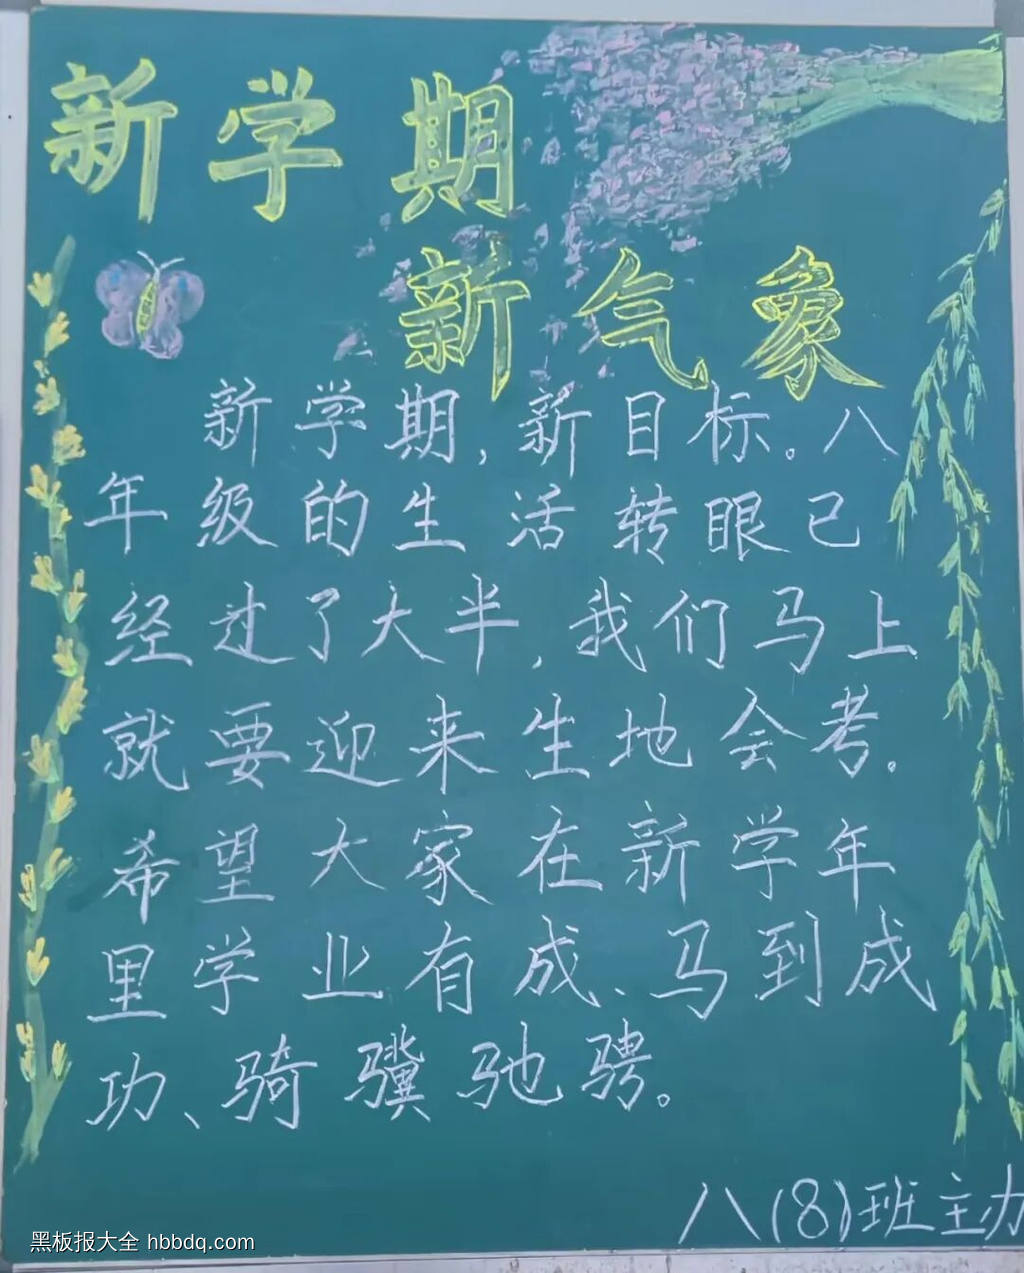 新学期
新气象
新学期,新目标。八
年级的生活转眼已
经过了大半,我们马上
就要迎来生地会考.
希望大家在新学年
里学业有成、马到成
功、骑骥驰骋。
八(8)班主办
黑板报大全 hbbdq.com